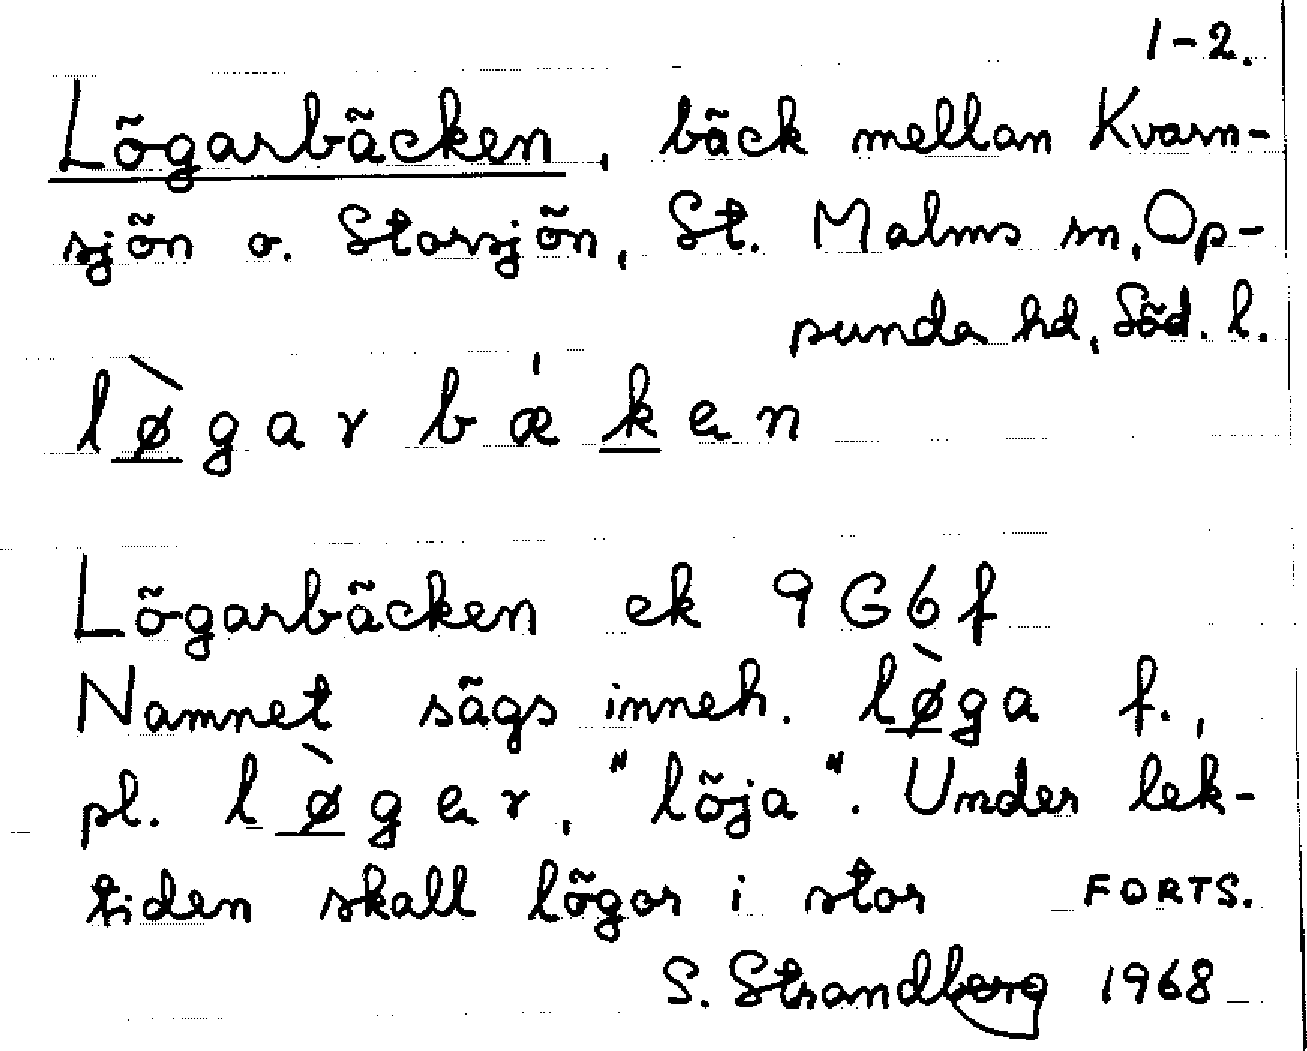 1-2.
Lögarbäcken, bäck mellan Kvarn-
sjön o. Storsjön, St. Malms sn, Op-
punda hd, Söd. l.
lø̀garbǽken
Lögarbäcken ek 9G6f
Namnet sägs inneh. lø̀ga f.,
pl. lø̀ger, "löja". Under lek-
tiden skall lögor i stor FORTS.
S. Strandberg 1968